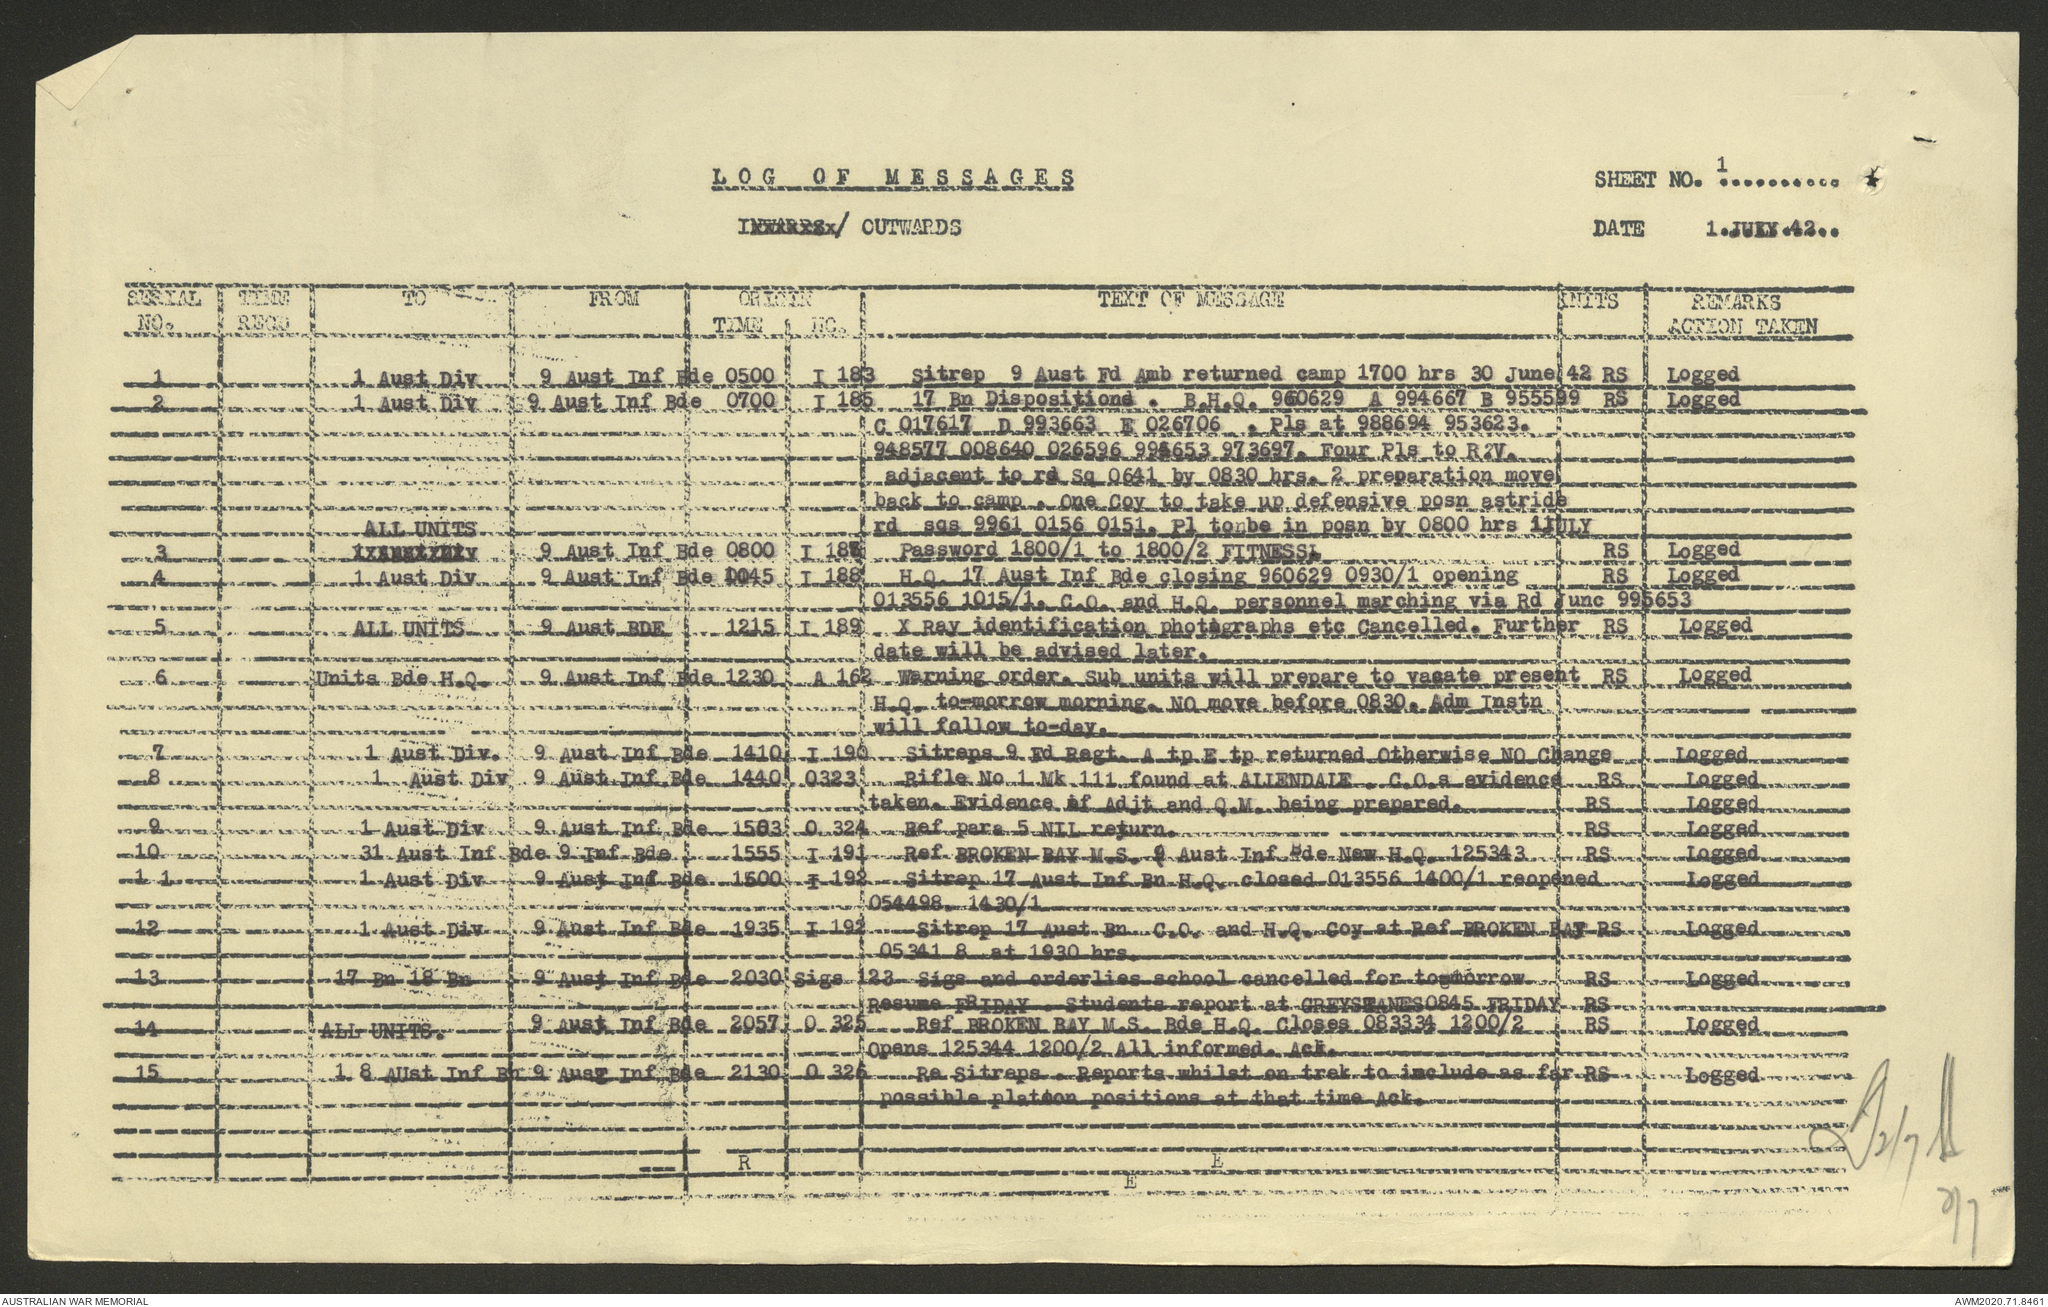 LOG OF MESSAGES
SHEET NO. 1
/ OUTWARDS
DATE 1.JULY.42..
SERIAL TIME TO FROM ORIGIN TEXT OF MESSAGE UNITS REMARKS
NO. RECD TIME NO. ACTION TAKEN
1 1 Aust Div 9 Aust Inf Bde 0500 I 183 Sitrep 9 Aust Fd Amb returned camp 1700 hrs 30 June 42 RS Logged
2 1 Aust Div 9 Aust Inf Bde 0700 I 185 17 Bn Dispositions . B.H.Q. 960629 A 994667 B 955599 RS Logged
C 017617 D 993663 E 026706 . Pls at 988694 953623.
948577 008640 026596 995653 973697. Four Pls to R?V.
adjacent to rd Sq 0641 by 0830 hrs. 2 preparation move
back to camp . One Coy to take up defensive posn astride
ALL UNITS rd sqs 9961 0156 0151. Pl tonbe in posn by 0800 hrs 1JULY
3 9 Aust Inf Bde 0800 I 187 Password 1800/1 to 1800/2 FITNESS. RS Logged
4 1 Aust Div 9 Aust Inf Bde 0045 I 188 H.Q. 17 Aust Inf Bde closing 960629 0930/1 opening RS Logged
013556 1015/1. C.O. and H.Q. personnel marching via Rd Junc 995653
5 ALL UNITS 9 Aust BDE 1215 I 189 X Ray identification photographs etc Cancelled. Further RS Logged
date will be advised later.
6 Units Bde H.Q. 9 Aust Inf Bde 1230 A 162 Warning order. Sub units will prepare to vacate present RS Logged
H.Q. to-morrow morning. NO move before 0830. Adm Instn
will follow to-day.
7 1 Aust Div. 9 Aust Inf Bde 1410 I 190 Sitreps 9 Fd Regt. A tp E tp returned Otherwise NO Change Logged
8 1 Aust Div 9 Aust Inf Bde 1440 O323 Rifle No 1 Mk 111 found at ALLENDALE . C.O.s evidence RS Logged
taken. Evidence of Adjt and Q.M. being prepared. RS Logged
9 1 Aust Div 9 Aust Inf Bde 1503 O 324 Ref para 5 NIL return. RS Logged
10 31 Aust Inf Bde 9 Inf Bde 1555 I 191 Ref BROKEN BAY M.S. 9 Aust Inf Bde New H.Q. 125343 RS Logged
1 1 1 Aust Div 9 Aust Inf Bde 1600 I 192 Sitrep 17 Aust Inf Bn H.Q. closed 013556 1400/1 reopened Logged
054498. 1430/1
12 1 Aust Div 9 Aust Inf Bde 1935 I 192 Sitrep 17 Aust Bn C.O. and H.Q. Coy at Ref BROKEN BAY RS Logged
05341 8 at 1930 hrs.
13 17 Bn 18 Bn 9 Aust Inf Bde 2030 Sigs 123 Sigs and orderlies school cancelled for tomorrow RS Logged
Resume FRIDAY . Students report at GREYSTANES0845 FRIDAY RS
14 ALL UNITS. 9 Aust Inf Bde 2057 O 325 Ref BROKEN BAY M.S. Bde H.Q. Closes 083334 1200/2 RS Logged
Opens 125344 1200/2 All informed. Ack.
15 1 8 AUst Inf Bn 9 Aust Inf Bde 2130 O 326 Re Sitreps . Reports whilst on trek to include as far RS Logged
possible platoon positions at that time Ack.
R E
E
2/7
2/7
AUSTRALIAN WAR MEMORIAL
AWM2020.71.8461